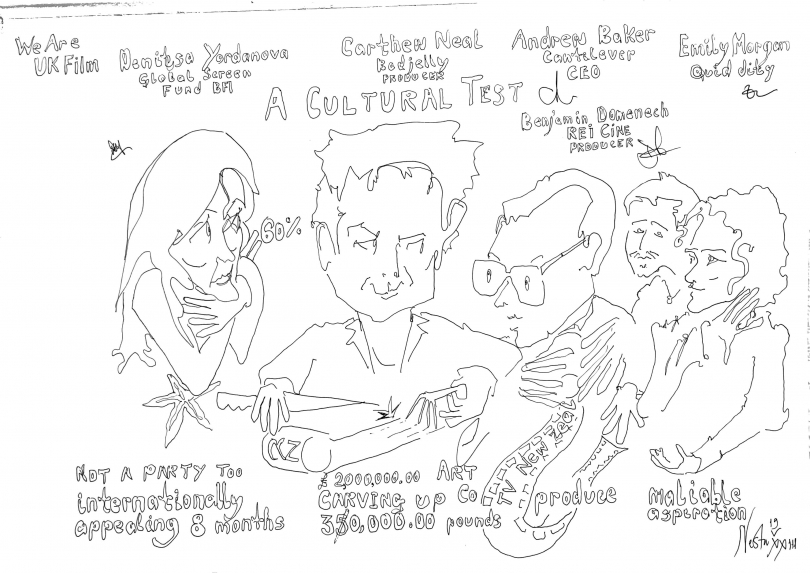 We Are
UK Film
Denitsa Yordanova
Global Screen
Fund BFI
Carthew Neal
Bodjelly
PRODUCER
Andrew Baker
Cantilever
CEO
Emily Morgan
Quid dity
A CULTURAL TEST
Benjamin Domenech
REi CiNE
PRODUCER
60%
NZ
TV New Zea
NOT A PARTY TOO
internationally
appealing 8 months
£ 2,000,000.00 ART
CARVING up Co
350,000.00 pounds
produce
maliable
aspiration